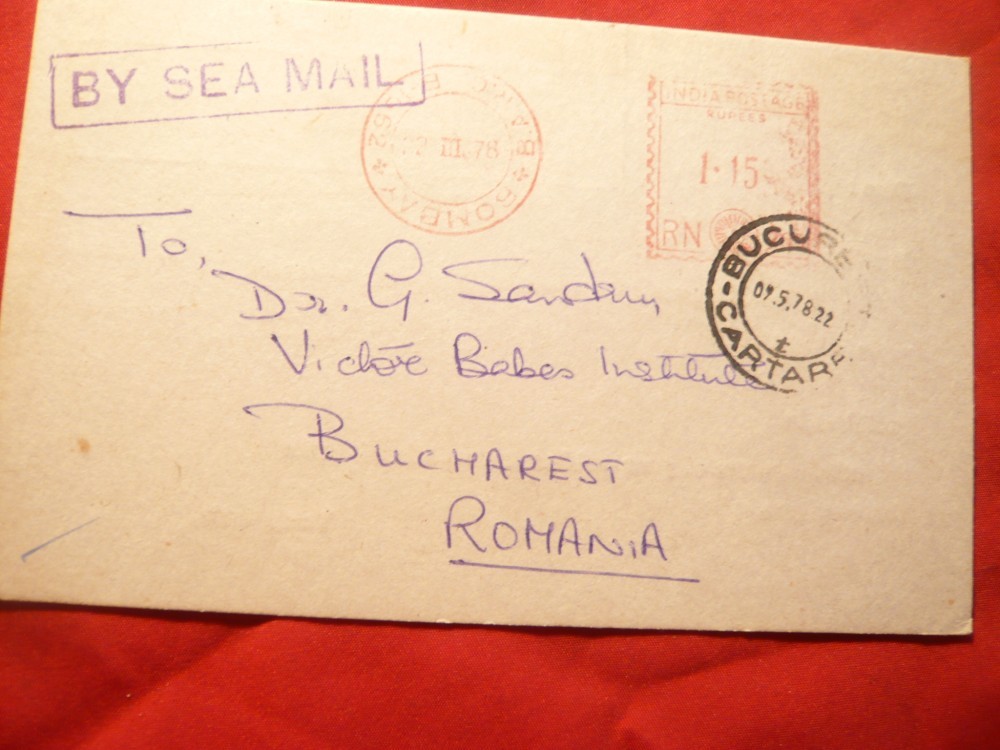 BY SEA MAIL
B.A.R.C.
BOMBAY
III.78
INDIA POSTAGE
RUPEES
1.15
RN
BUCURE
09.5.78 22
CARTARE
To,
Dr. G. Sandru,
Victor Babes Institute
BUCHAREST
ROMANIA